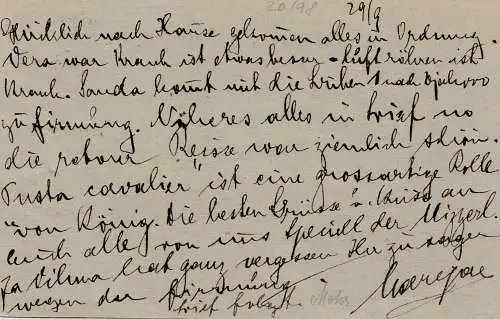 20/98 29/9
Glücklich nach Hause gekommen alles in Ordnung.
Vera war Krank ist etwas besser - luftröhren ist
Krank. Sanda komt mit die lieben 1 nach
zu firmung. Näheres alles in brief no
die retour Reisse war ziemlich schön.
"Pusta cavalier" ist eine grossartige Rolle
von König. Die besten Grüsse u. Küsse an
euch alle von uns speciell der Mizzerl
ja Vilma hat ganz vergessen Ihr zu sagen
wegen der Firmung
brief folgt.